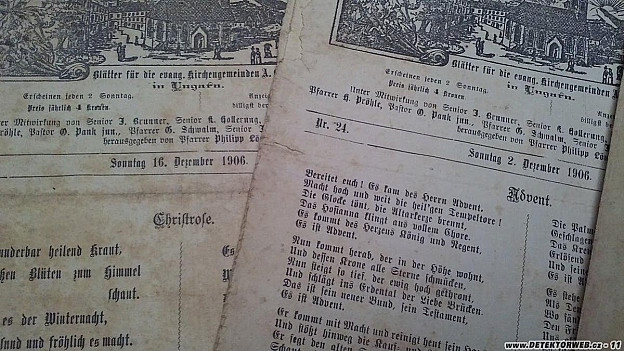 Blätter für die evang. Kirchengemeinden A.
in Ungarn.
Erscheinen jeden 2 Sonntag.
Preis jährlich 4 Kronen
Mitwirkung von Senior J. Brunner, Senior A. Hollerung,
Pröhle, Pastor G. Pank jun., Pfarrer G. Schwalm, Senior
herausgegeben von Pfarrer Philipp
Sonntag 16. Dezember 1906.
Christrose.
wunderbar heilend Kraut,
Blüten zum Himmel
schaut.
es der Winternacht,
und fröhlich es macht.
Blätter für die evang. Kirchengemeinden A.
in Ungarn.
Erscheinen jeden 2 Sonntag.
Preis jährlich 4 Kronen
Unter Mitwirkung von Senior J. Brunner, Senior A. Hollerung,
Pfarrer H. Pröhle, Pastor G. Pank jun., Pfarrer G. Schwalm, Senior
herausgegeben von Pfarrer Philipp
Nr. 24.
Sonntag 2. Dezember 1906.
Advent.
Bereitet euch! Es kam des Herrn Advent.
Macht hoch und weit die heil'gen Tempeltore!
Die Glocke tönt, die Altarkerze brennt,
Das Hosianna klingt aus vollem Chore.
Es kommt des Herzens König und Regent,
Es ist Advent.
Nun kommt herab, der in der Höhe wohnt,
Und dessen Krone alle Sterne schmücken,
Nun steigt so tief, der ewig hoch gethront,
Und schlägt ins Erdental der Liebe Brücken.
Das ist sein neuer Bund, sein Testament,
Es ist Advent.
Er kommt mit Macht und reinigt
Und stößt hinweg die Kauf- und
Er segt den alten
Die Palmen
Geschlagen
Das
Erlösend
Und sein
Es ist
www.DETEKTORWEB.cz - 11